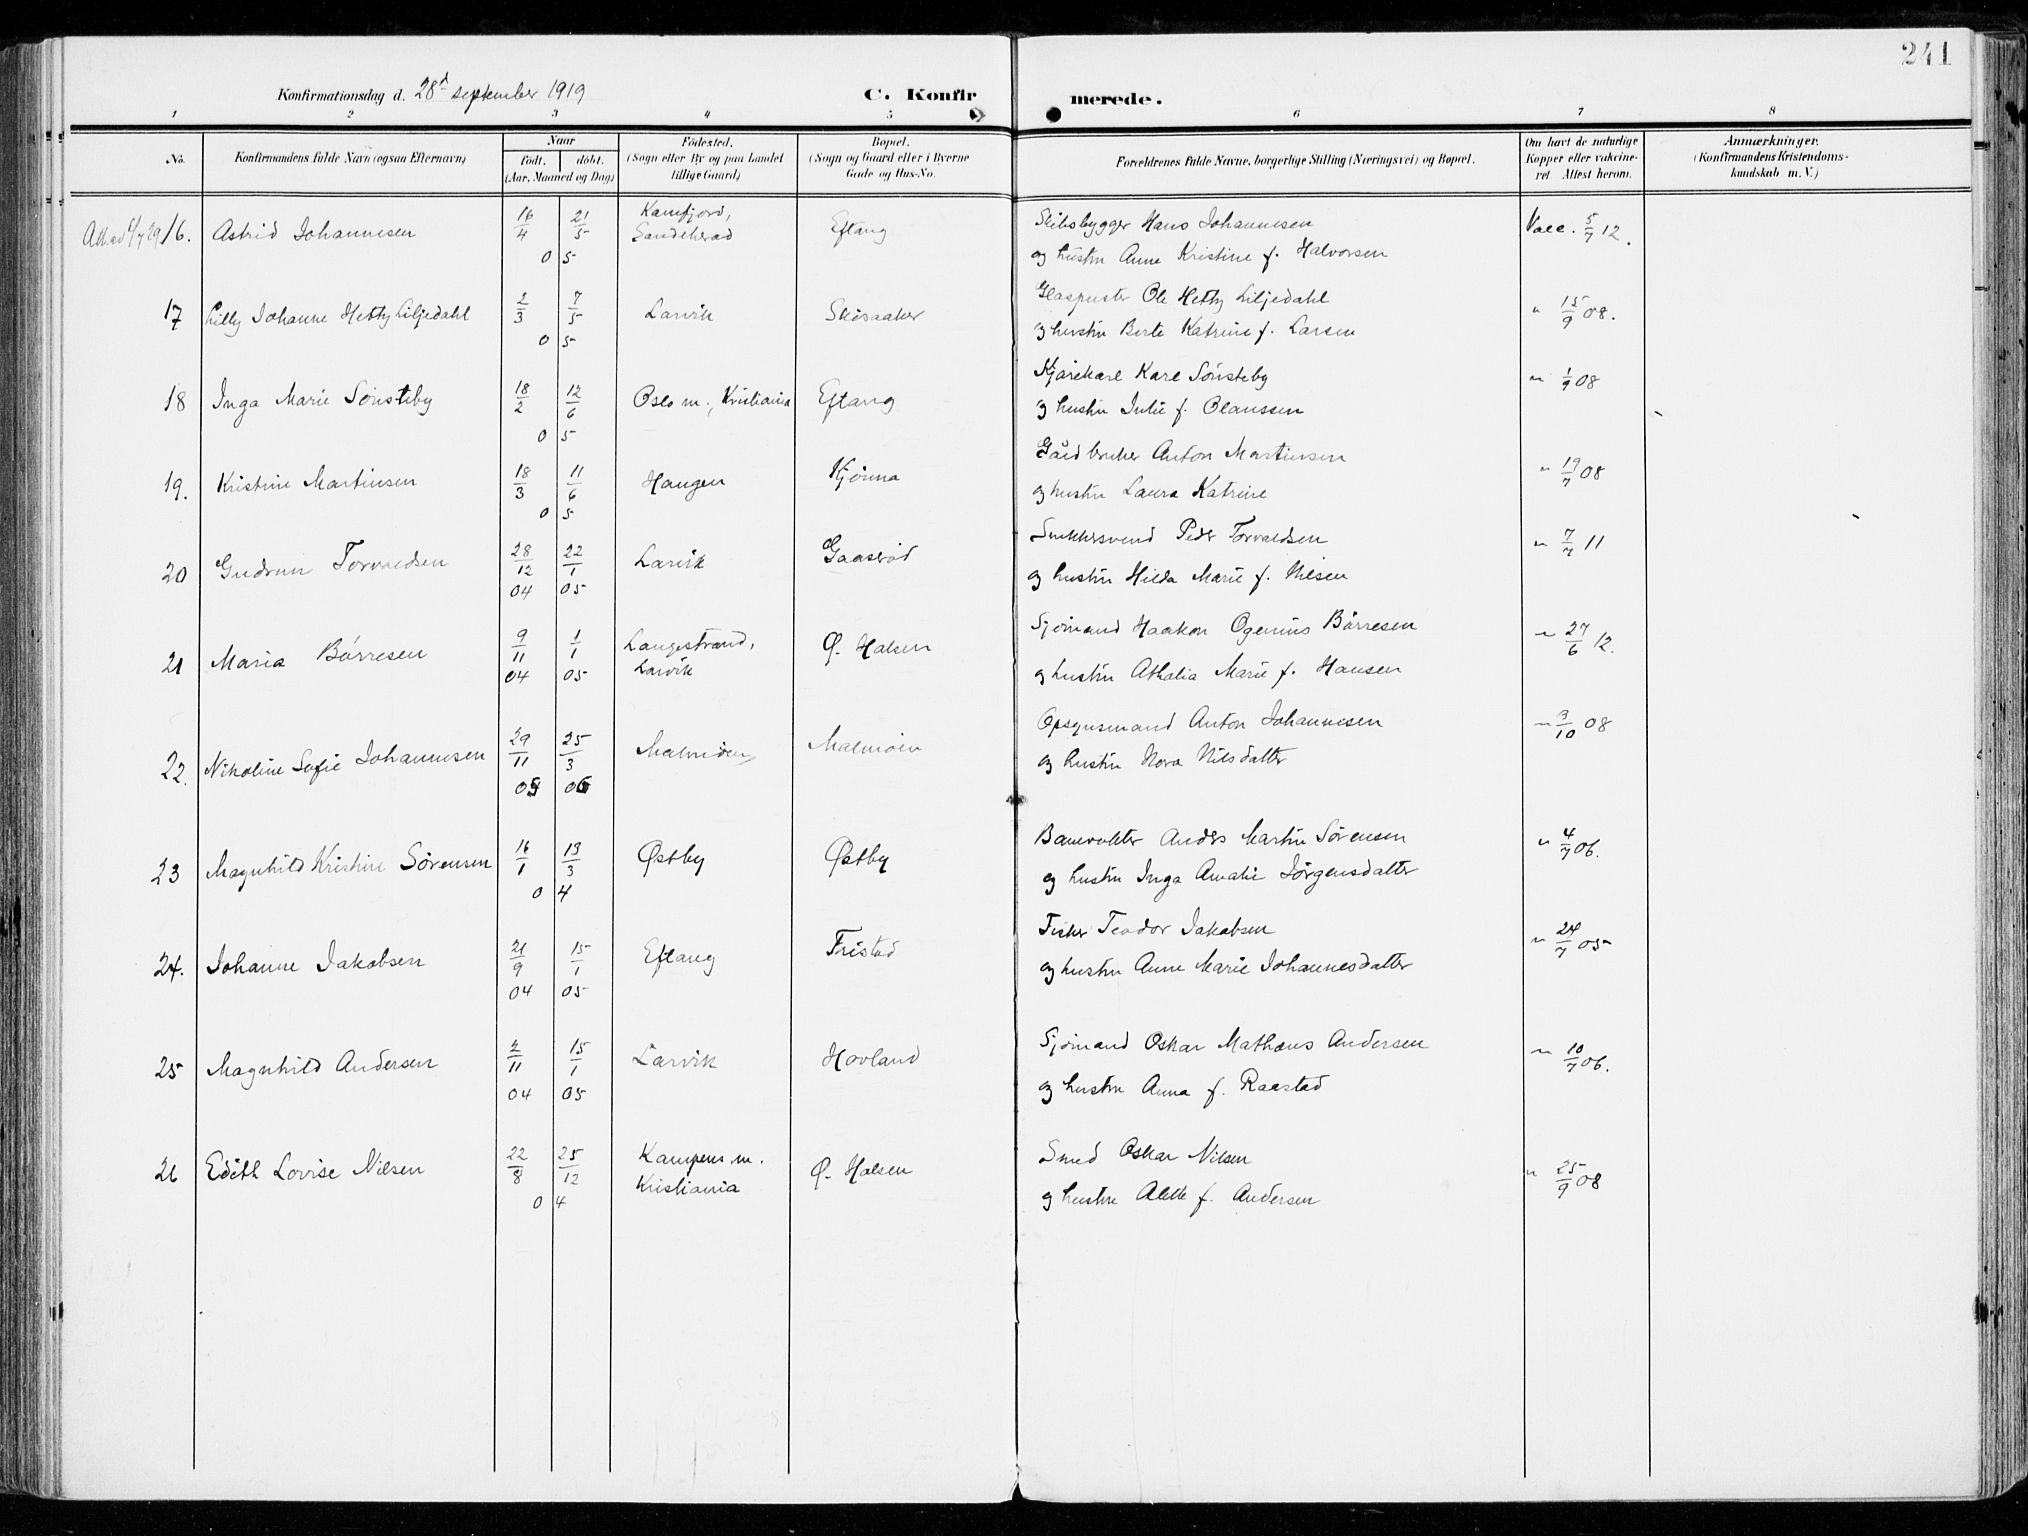 241
Konfirmationsdag d. 28d september 1919
C. Konfirmerede.
1 2 3 4 5 6 7 8
No. Konfirmandens fulde Navn (ogsaa Efternavn) Naar født. døbt. (Aar, Maaned og Dag) Fødested. (Sogn eller By og paa Landet tillige Gaard) Bopæl. (Sogn og Gaard eller i Byerne Gade og Hus-No. Forældrenes fulde Navne, borgerlige Stilling (Næringsvei) og Bopæl. Om havt de naturlige Kopper eller vakcineret. Attest herom. Anmærkninger. (Konfirmandens Kristendomskundskab m. V.)
16. Astrid Johannesen 16/4 21/5 Kamfjord, Eftang Skibsbygger Hans Johannesen Vacc. 5/7 12.
0 5 Sandeherad og hustru Anne Kristine f. Halvorsen
17 Lilly Johanne Hetty Liljedahl 2/3 7/5 Larvik Skisaaker Glaspuster Ole Hetty Liljedahl " 15/9 08.
0 5 og hustru Berte Katrine f. Larsen
18 Inga Marie Sønsteby 18/2 12/6 Oslo m., Kristiania Eftang Kjørekarl Karl Sønsteby " 1/9 08
0 5 og hustru Julie f. Olaussen
19. Kristine Martinsen 18/3 11/6 Haugen Kjønna Gårdbruker Anton Martinsen " 19/7 08
0 5 og hustru Laura Katrine
20 Gudrun Torvaldsen 28/12 22/1 Larvik Gaaserød Snekkersvend Peder Torvaldsen " 7/7 11
04 05 og hustru Hilda Marie f. Nilsen
21 Maria Børresen 9/11 1/1 Langestrand, Ø. Halsen Sjømand Haakon Ogenius Børresen " 27/6 12.
04 05 Larvik og hustru Athalia Marie f. Hansen
22. Nikoline Sofie Johannesen 29/11 25/3 Malmøen Malmøen Opsynsmand Anton Johannesen " 3/10 08
og hustru Nora Nilsdatter
23 Magnhild Kristine Sørensen 16/1 13/3 Østby Østby Banevokter Anders Martin Sørensen " 4/7 06.
0 4 og hustru Inga Amalie Jørgensdatter
24. Johanne Jakobsen 21/9 15/1 Eftang Fristad Fisker Teodor Jakobsen " 24/7 05
04 05 og hustru Anne Marie Johannesdatter
25 Magnhild Andersen 2/11 15/1 Larvik Hovland Sjømand Oskar Mathæus Andersen " 10/7 06.
04 05 og hustru Anna f. Raastad
26 Edith Lovise Nilsen 22/8 25/12 Kampens m. Ø. Halsen Smed Oskar Nilsen " 25/9 08
0 4 Kristiania og hustru Alette f. Andersen